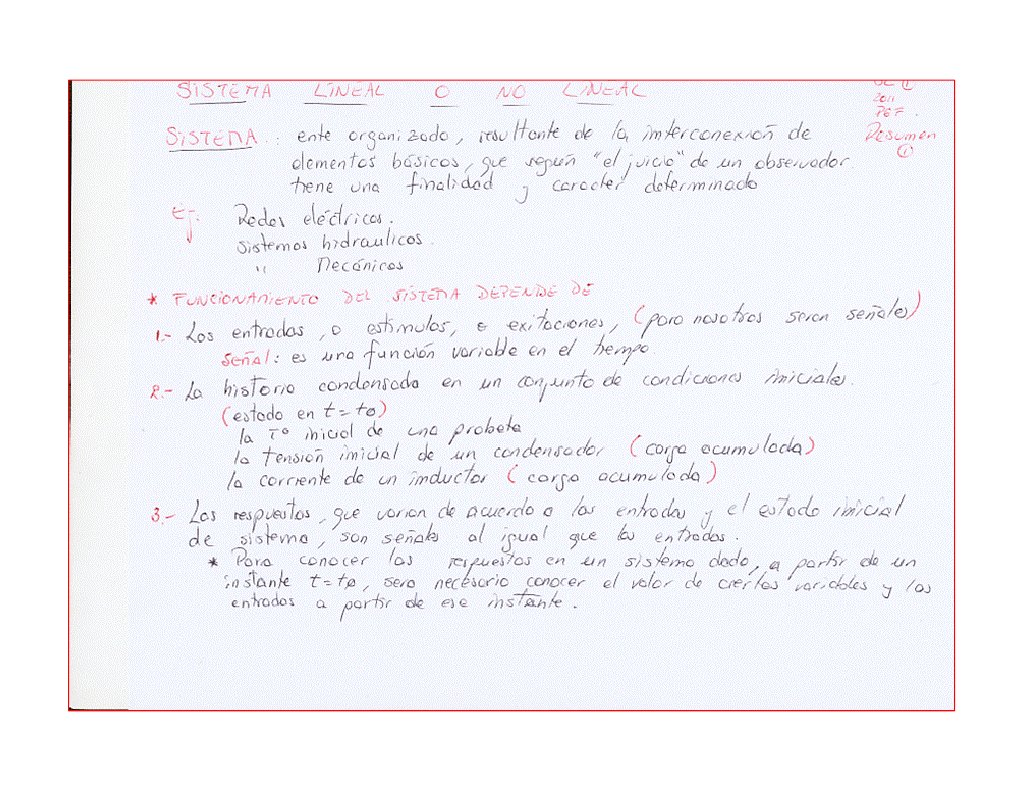 SISTEMA LINEAL O NO LINEAL
2011
PGF.
Resumen
①
SISTEMA.: ente organizado, resultante de la interconexión de
elementos básicos, que según "el juicio" de un observador
tiene una finalidad y caracter determinado
Ej. Redes eléctricas.
Sistemas hidraulicos.
" Mecánicos
* FUNCIONAMIENTO DEL SISTEMA DEPENDE DE
1.- Las entradas, o estimulos, o exitaciones, (para nosotros seran señales)
SEÑAl: es una función variable en el tiempo
2.- La historia condensada en un conjunto de condiciones iniciales.
(estado en t = to)
la Tº inicial de una probeta
la tensión inicial de un condensador (carga acumulada)
la corriente de un inductor (carga acumulada)
3.- Las respuestas, que varian de acuerdo a las entradas y el estado inicial
de sistema, son señales al igual que las entradas.
* Para conocer las respuestas en un sistema dado, a partir de un
instante t = to, sera necesario conocer el valor de ciertas variables y las
entradas a partir de ese instante.